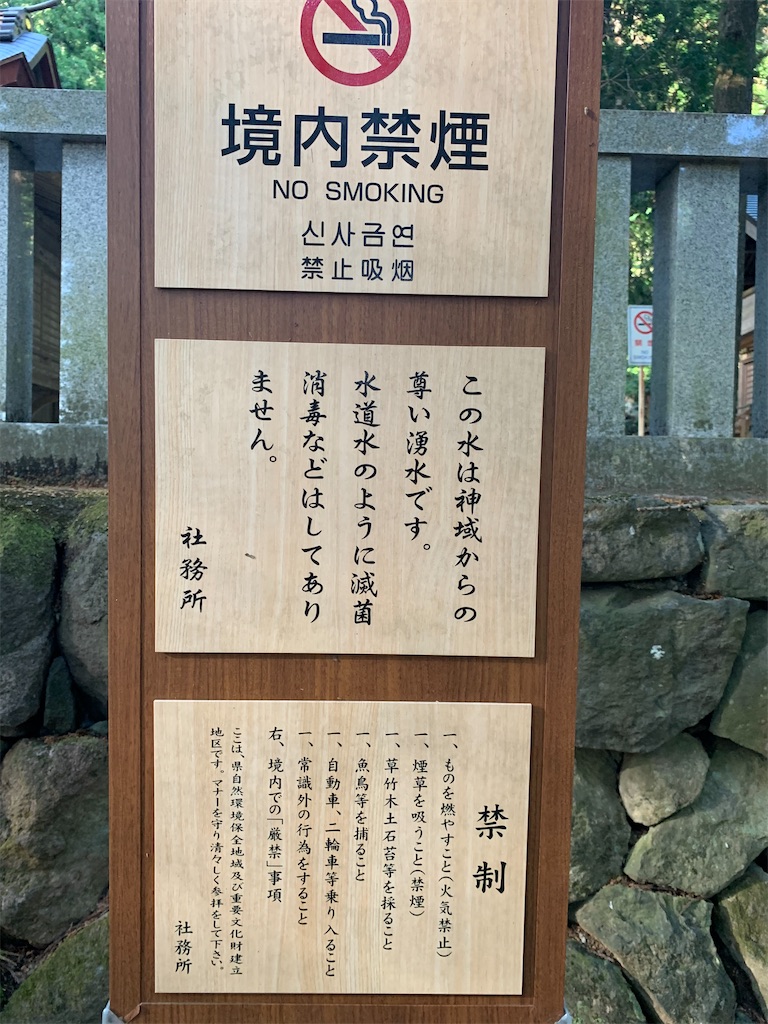 境内禁煙
NO SMOKING
신사금연
禁止吸烟
この水は神域からの
尊い湧水です。
水道水のように滅菌
消毒などはしてあり
ません。
社務所
禁制
一、ものを燃やすこと(火気禁止)
一、煙草を吸うこと(禁煙)
一、草竹木土石苔等を採ること
一、魚鳥等を捕ること
一、自動車、二輪車等乗り入ること
一、常識外の行為をすること
右、境内での「厳禁」事項
ここは、県自然環境保全地域及び重要文化財建立
地区です。マナーを守り清々しく参拝をして下さい。
社務所